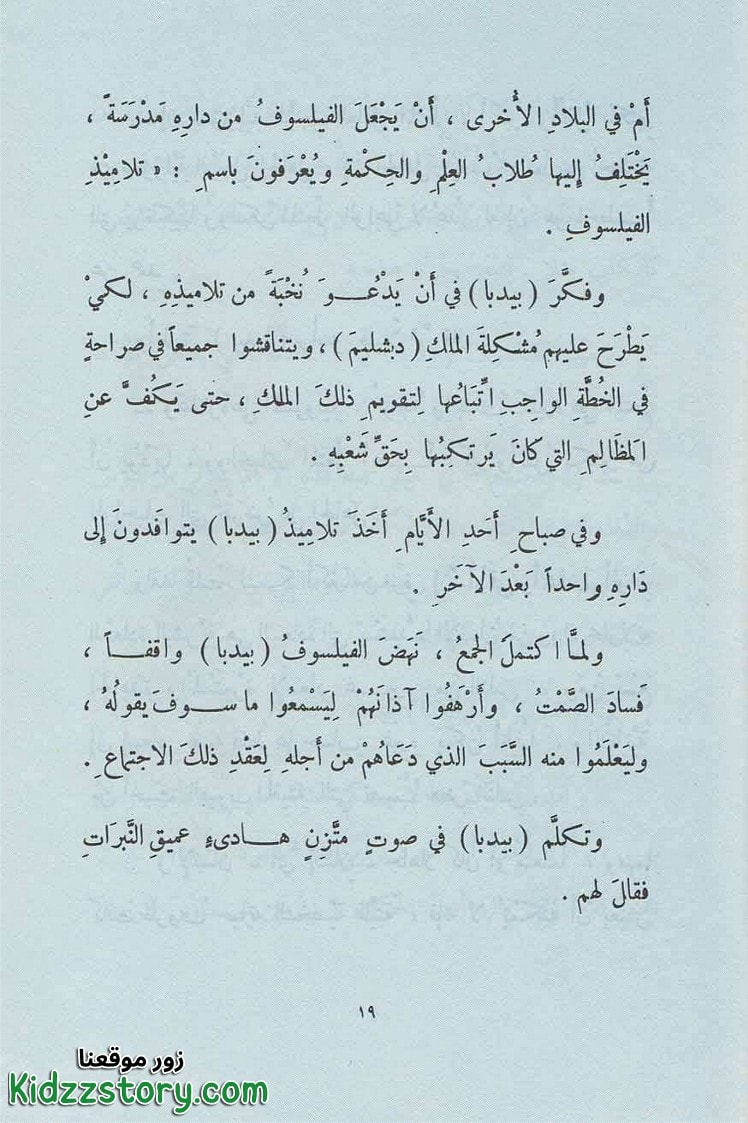 أَمْ في البلادِ الأُخرى ، أَنْ يَجْعَلَ الفيلسوفُ من دارِهِ مَدْرَسَةً ،
يَخْتَلِفُ إليها طُلابُ العِلْمِ والحِكْمةِ ويُعْرَفونَ باسمِ : « تلامِيْذِ
الفيلسوفِ .
وفكَّرَ ( بيدبا ) في أَنْ يَدْعُـوَ نُخْبَةً من تلاميذِهِ ، لكيْ
يَطْرَحَ عليهم مُشْكِلةَ الملكِ ( دبشليمَ ) ، ويتناقشوا جميعاً في صراحةٍ
في الخُطَّةِ الواجبِ اتِّبَاعُها لِتقويمِ ذلكَ الملكِ ، حتى يَكُفَّ عنِ
المظَالِمِ التي كانَ يَرتكِبُها بِحَقِّ شَعْبِهِ .
وفي صباحِ أَحَدِ الأَيَّامِ أَخَذَ تلاميذُ ( بيدبا ) يتوافَدونَ إلى
دَارِهِ واحداً بَعْدَ الآخَرِ .
ولمَّا اكتملَ الجمعُ ، نَهَضَ الفيلسوفُ ( بيدبا ) واقفـاً ،
فَسادَ الصَّمْتُ ، وأَرْهَفُوا آذانَهُمْ لِيَسْمَعُوا ما سوفَ يقولُهُ ،
وليَعْلَمُوا منه السَّبَبَ الذي دَعَاهُمْ من أَجلهِ لِعَقْدِ ذلكَ الاجتماعِ .
وتكلَّم ( بيدبا ) في صوتٍ متَّزنٍ هـادىءٍ عميقِ النَّبرَاتِ
فقالَ لهم .
١٩
زور موقعنا
Kidzzstory.com